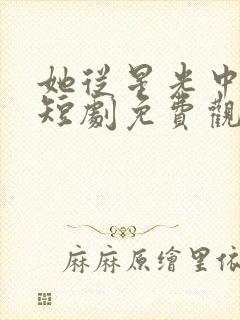 她從星光中
短劇免費觀
麻麻原繪里依